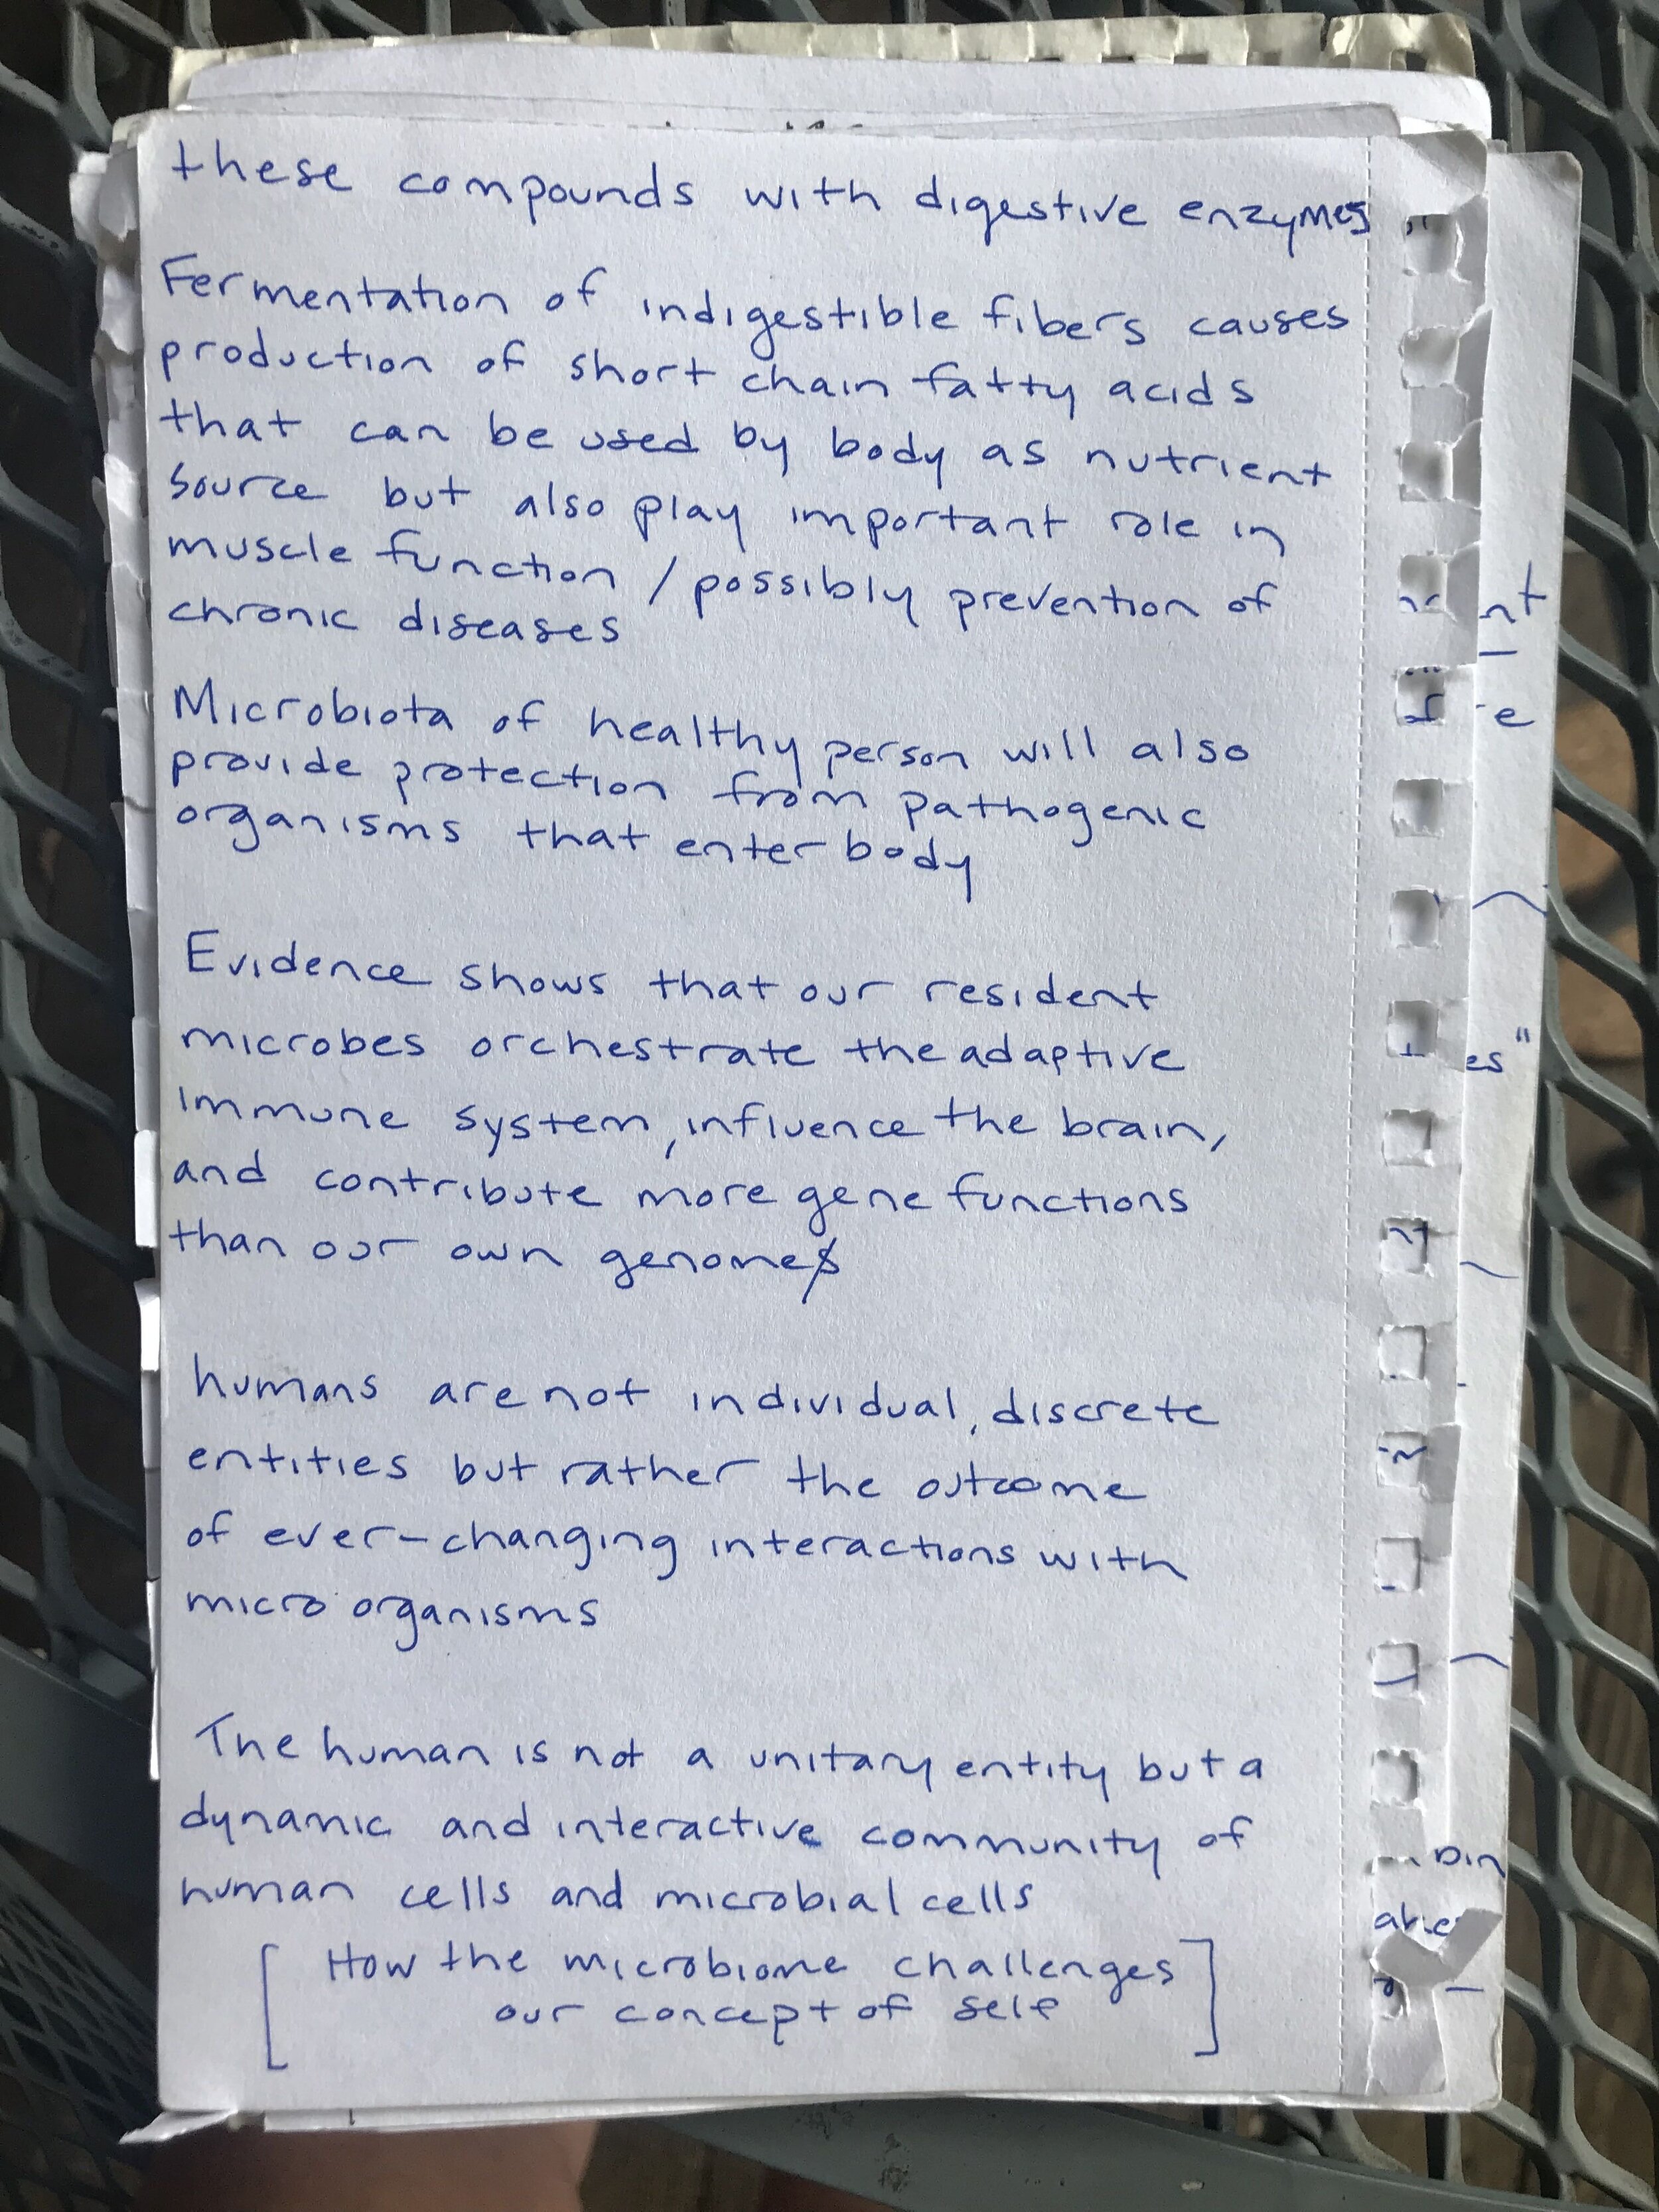 these compounds with digestive enzymes
Fermentation of indigestible fibers causes
production of short chain fatty acids
that can be used by body as nutrient
source but also play important role in
muscle function / possibly prevention of
chronic diseases
Microbiota of healthy person will also
provide protection from pathogenic
organisms that enter body
Evidence shows that our resident
microbes orchestrate the adaptive
immune system, influence the brain,
and contribute more gene functions
than our own genome
humans are not individual, discrete
entities but rather the outcome
of ever-changing interactions with
micro organisms
The human is not a unitary entity but a
dynamic and interactive community of
human cells and microbial cells
[ How the microbiome challenges
our concept of self ]